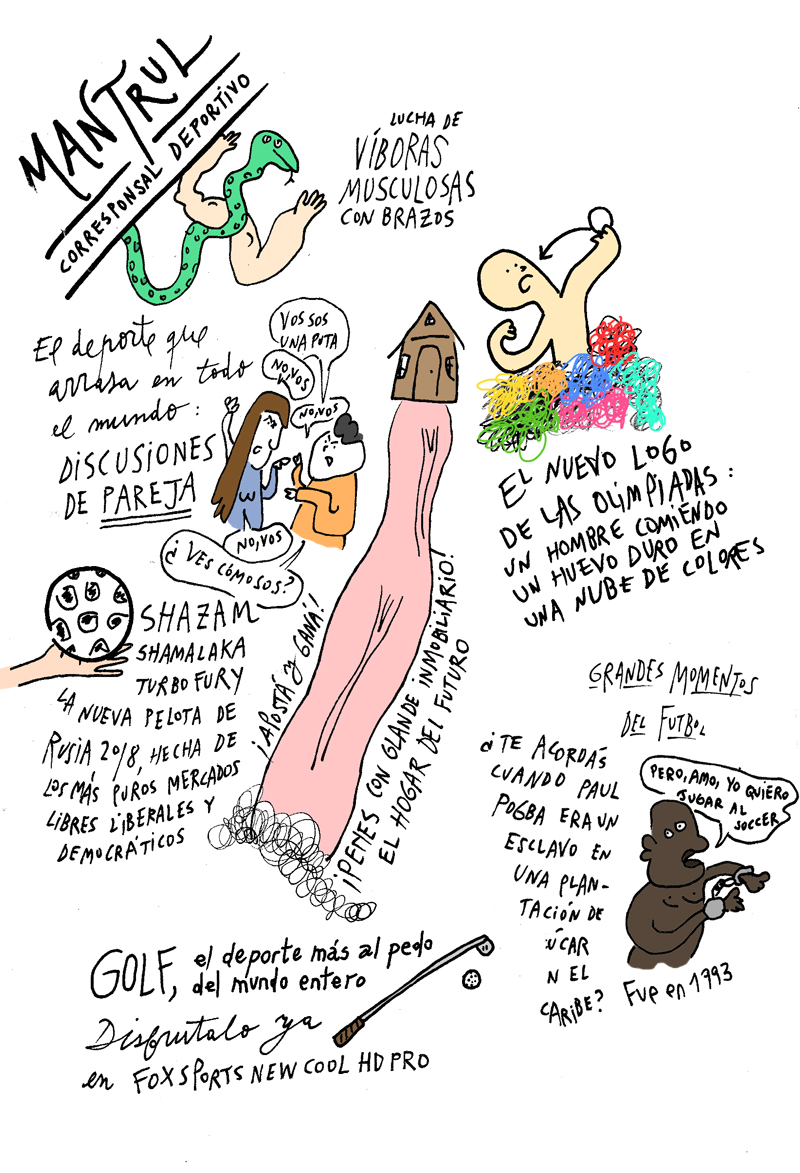 MANTRUL
CORRESPONSAL DEPORTIVO
LUCHA DE
VÍBORAS
MUSCULOSAS
CON BRAZOS
El deporte que
arrasa en todo
el mundo:
DISCUSIONES
DE PAREJA
VOS SOS
UNA PUTA
NO, VOS
NO, VOS
NO, VOS
¿VES CÓMO SOS?
EL NUEVO LOGO
DE LAS OLIMPÍADAS:
UN HOMBRE COMIENDO
UN HUEVO DURO EN
UNA NUBE DE COLORES
SHAZAM
SHAMALAKA
TURBO FURY
LA NUEVA PELOTA DE
RUSIA 2018, HECHA DE
LOS MÁS PUROS MERCADOS
LIBRES LIBERALES Y
DEMOCRÁTICOS
¡APOSTÁ Y GANÁ!
¡PENES CON GLANDE INMOBILIARIO!
EL HOGAR DEL FUTURO
GRANDES MOMENTOS
DEL FUTBOL
¿TE ACORDÁS
CUANDO PAUL
POGBA ERA UN
ESCLAVO EN
UNA PLAN-
TACIÓN DE
ÚCAR
N EL
CARIBE?
FUE EN 1793
PERO, AMO, YO QUIERO
JUGAR AL
SOCCER
GOLF, el deporte más al pedo
del mundo entero
Disfrutalo ya
en FOX SPORTS NEW COOL HD PRO